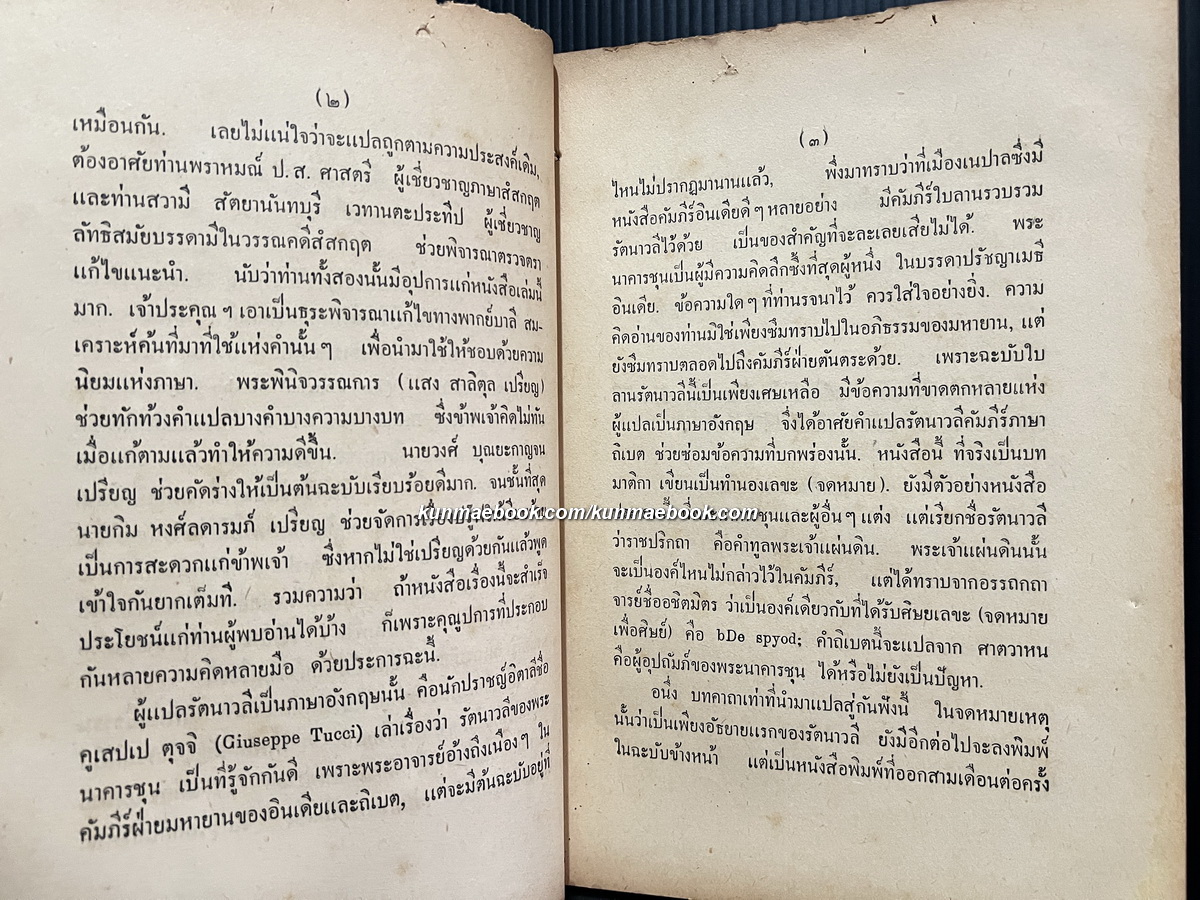 (๒)
เหมือนกัน. เลยไม่แน่ใจว่าจะแปลถูกตามความประสงค์เดิม,
ต้องอาศัยท่านพราหมณ์ ป.ส. ศาสตรี ผู้เชี่ยวชาญภาษาสํสกฤต
และท่านสวามี สัตยานันทบุรี เวทานตะประทีป ผู้เชี่ยวชาญ
ลัทธิสมัยบรรดามีในวรรณคดีสํสกฤต ช่วยพิจารณาตรวจตรา
แก้ไขแนะนำ. นับว่าท่านทั้งสองนั้นมีอุปการแก่หนังสือเล่มนี้
มาก. เจ้าประคุณ ฯ เอาเป็นธุระพิจารณาแก้ไขทางพากย์บาลี สม-
เคราะห์ค้นที่มาที่ใช้แห่งคำนั้น ๆ เพื่อนำมาใช้ให้ชอบด้วยความ
นิยมแห่งภาษา. พระพินิจวรรณการ (แสง สาลิตุล เปรียญ)
ช่วยทักท้วงคำแปลบางคำบางความบางบท ซึ่งข้าพเจ้าคิดไม่ทัน
เมื่อแก้ตามแล้วทำให้ความดีขึ้น. นายวงศ์ บุณยะกาญจน
เปรียญ ช่วยคัดร่างให้เป็นต้นฉะบับเรียบร้อยดีมาก. จนชั้นที่สุด
นายกิม หงศ์ลดารมภ์ เปรียญ ช่วยจัดการเรียง
เป็นการสะดวกแก่ข้าพเจ้า ซึ่งหากไม่ใช่เปรียญด้วยกันแล้วพูด
เข้าใจกันยากเต็มที. รวมความว่า ถ้าหนังสือเรื่องนี้จะสำเร็จ
ประโยชน์แก่ท่านผู้พบอ่านได้บ้าง ก็เพราะคุณูปการที่ประกอบ
กันหลายความคิดหลายมือ ด้วยประการฉะนี้.
ผู้แปลรัตนาวลีเป็นภาษาอังกฤษนั้น คือนักปราชญ์อิตาลีชื่อ
คูเสปเป ตุจจิ (Giuseppe Tucci) เล่าเรื่องว่า รัตนาวลีของพระ
นาคารชุน เป็นที่รู้จักกันดี เพราะพระอาจารย์อ้างถึงเนือง ๆ ใน
คัมภีร์ฝ่ายมหายานของอินเดียและถิเบต, แต่จะมีต้นฉะบับอยู่ที่
(๓)
ไหนไม่ปรากฏมานานแล้ว, พึ่งมาทราบว่าที่เมืองเนปาลซึ่งมี
หนังสือคัมภีร์อินเดียดี ๆ หลายอย่าง มีคัมภีร์ใบลานรวบรวม
รัตนาวลีไว้ด้วย เป็นของสำคัญที่จะละเลยเสียไม่ได้. พระ
นาคารชุนเป็นผู้มีความคิดลึกซึ้งที่สุดผู้หนึ่ง ในบรรดาปรัชญาเมธี
อินเดีย. ข้อความใด ๆ ที่ท่านรจนาไว้ ควรใส่ใจอย่างยิ่ง. ความ
คิดอ่านของท่านมิใช่เพียงซึมทราบไปในอภิธรรมของมหายาน, แต่
ยังซึมทราบตลอดไปถึงคัมภีร์ฝ่ายตันตระด้วย. เพราะฉะบับใบ
ลานรัตนาวลีนี้เป็นเพียงเศษเหลือ มีข้อความที่ขาดตกหลายแห่ง
ผู้แปลเป็นภาษาอังกฤษ จึงได้อาศัยคำแปลรัตนาวลีคัมภีร์ภาษา
ถิเบต ช่วยซ่อมข้อความที่บกพร่องนั้น. หนังสือนี้ ที่จริงเป็นบท
มาติกา เขียนเป็นทำนองเลขะ (จดหมาย). ยังมีตัวอย่างหนังสือ
ชุนและผู้อื่น ๆ แต่ง แต่เรียกชื่อรัตนาวลี
ว่าราชปริกถา คือคำทูลพระเจ้าแผ่นดิน. พระเจ้าแผ่นดินนั้น
จะเป็นองค์ไหนไม่กล่าวไว้ในคัมภีร์, แต่ได้ทราบจากอรรถกถา
จารย์ชื่ออชิตมิตร ว่าเป็นองค์เดียวกับที่ได้รับศิษยเลขะ (จดหมาย
เพื่อศิษย์) คือ bDe spyod; คำถิเบตนี้จะแปลจาก ศาตวาหน
คือผู้อุปถัมภ์ของพระนาคารชุน ได้หรือไม่ยังเป็นปัญหา.
อนึ่ง บทคาถาเท่าที่นำมาแปลสู่กันฟังนี้ ในจดหมายเหตุ
นั้นว่าเป็นเพียงอัธยายแรกของรัตนาวลี ยังมีอีกต่อไปจะลงพิมพ์
ในฉะบับข้างหน้า แต่เป็นหนังสือพิมพ์ที่ออกสามเดือนต่อครั้ง
kunmaebook.com/kunmaebook.com